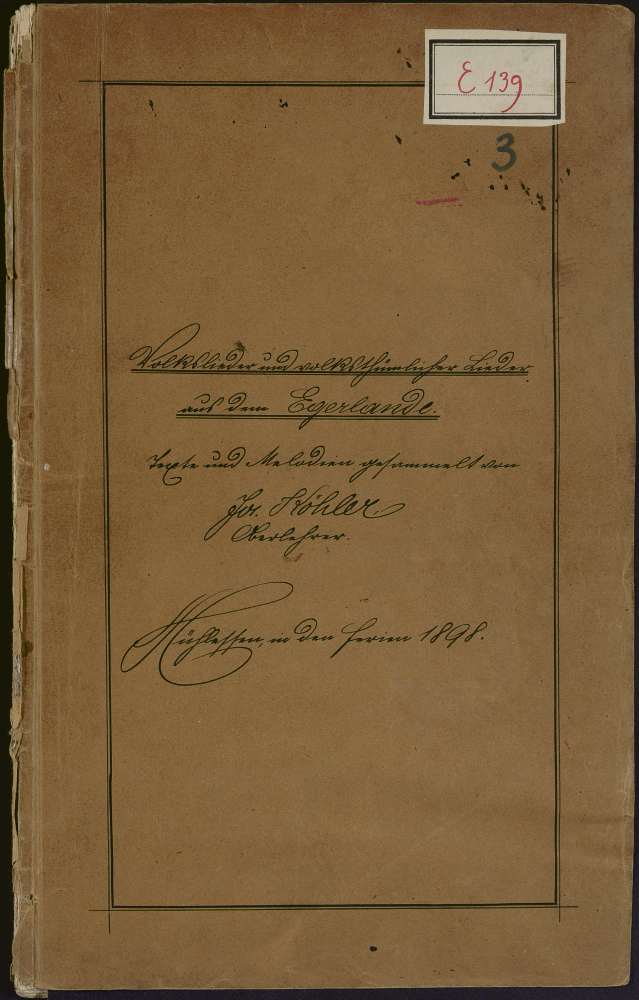 E 139
3
Volkslieder und volksthümlicher Lieder
aus dem Egerlande.
Texte und Melodien gesammelt von
Jos. Köhler
Oberlehrer.
Mühlessen, in den Ferien 1898.